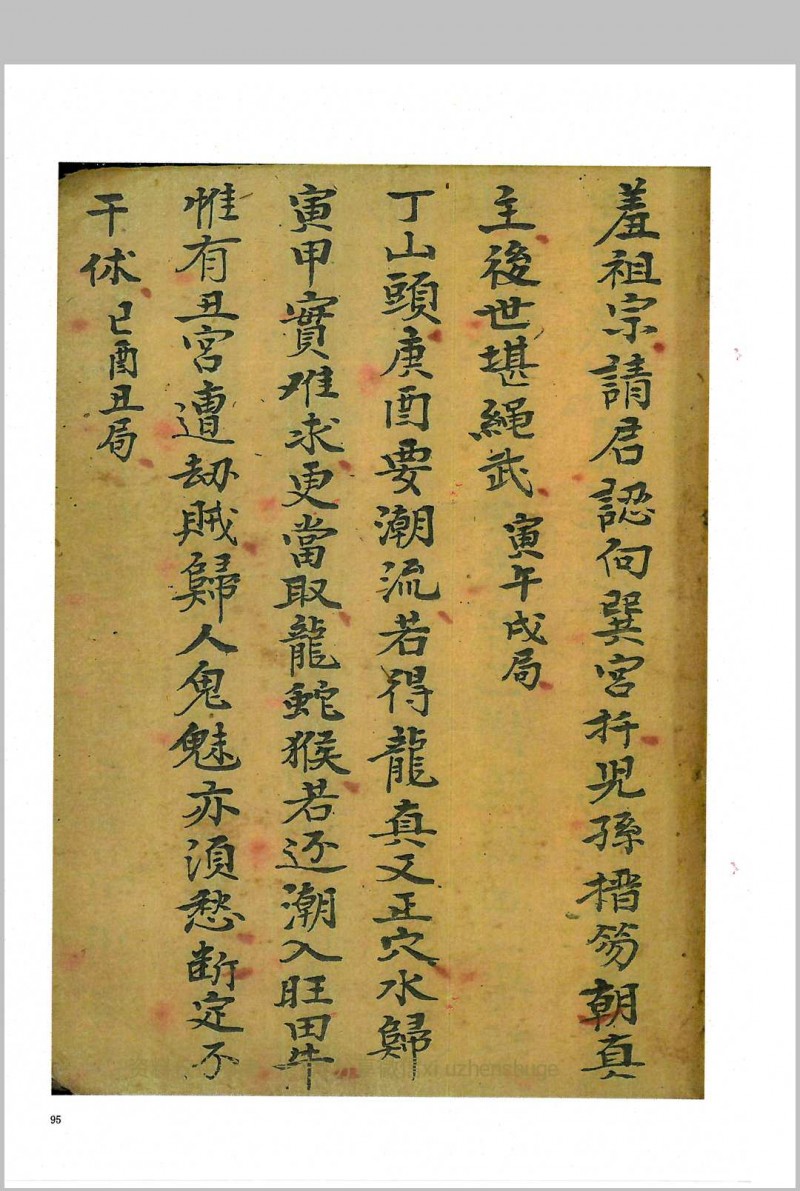 羞祖宗請君認向巽宮扦児孫搢笏朝真
主後世堪繩武 寅午戌局
丁山頭庚酉要潮流若得龍真又正穴水歸
寅甲實难求更當取龍蛇猴若还潮入旺田牛
惟有丑宮遭劫賊歸人鬼魅亦須愁断定不
干休 巳酉丑局
95